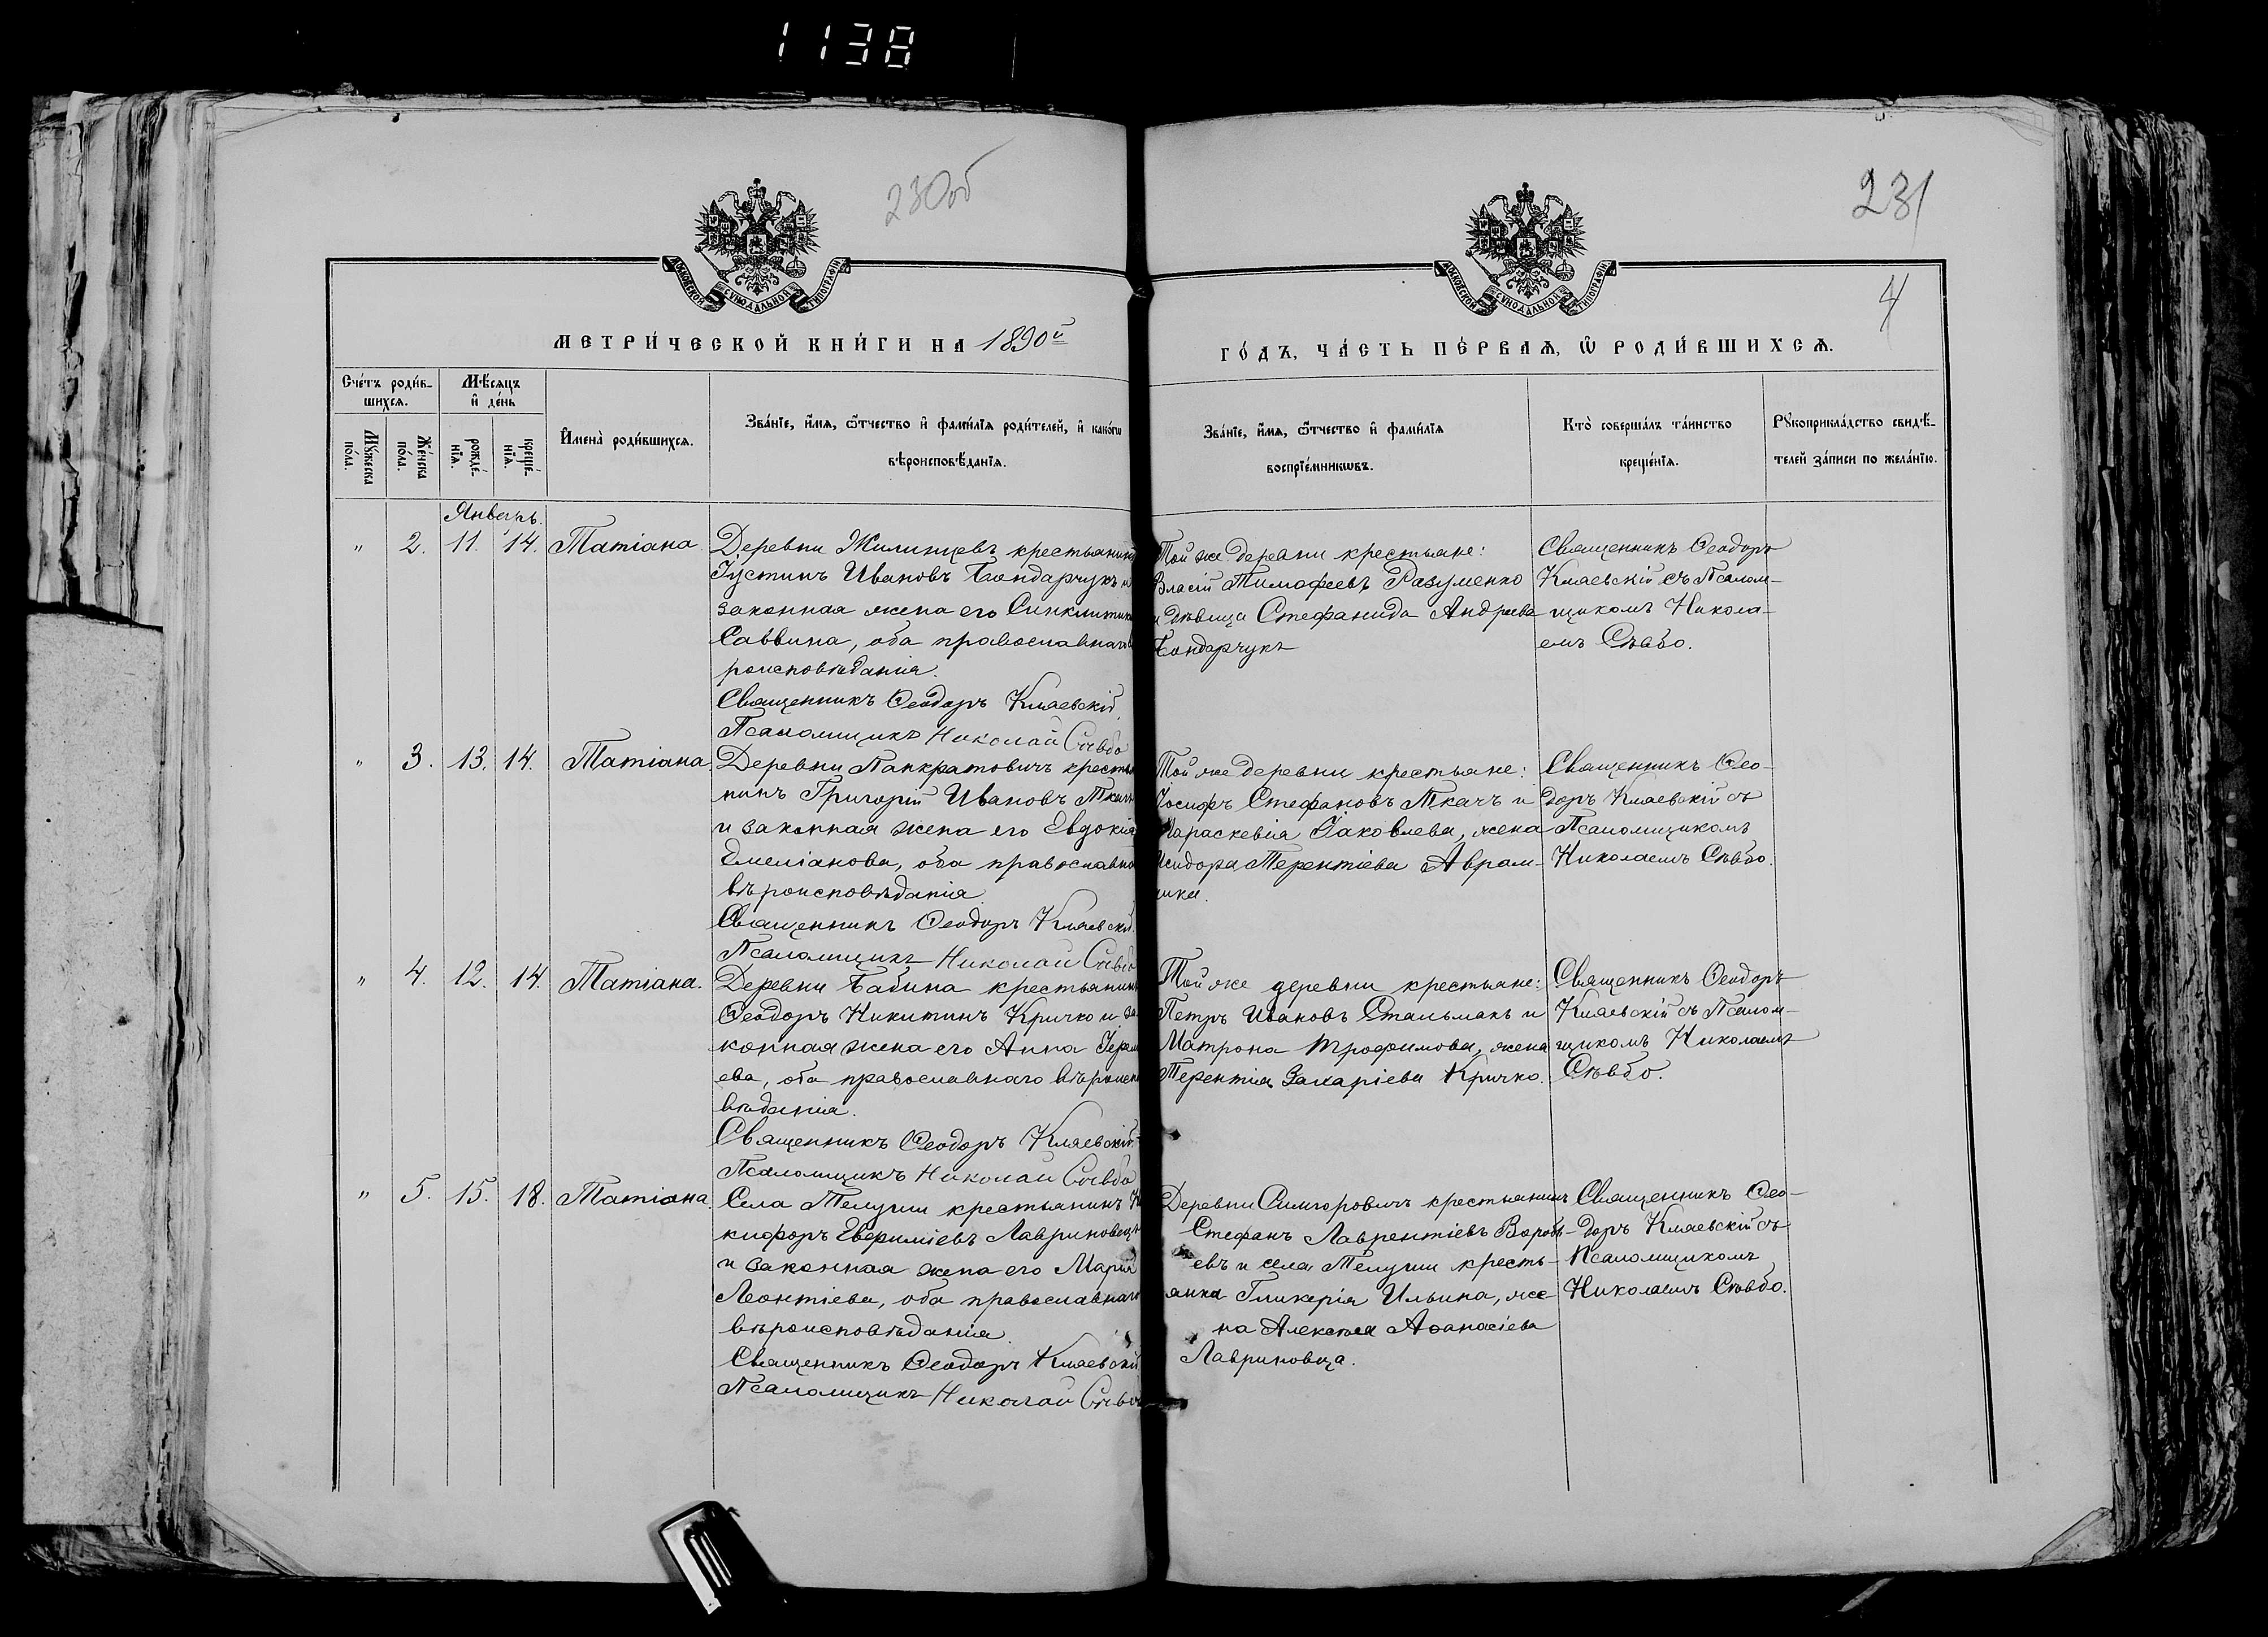 1138
230об
231
4
МОСКОВСКОЙ СѴНОДАЛЬНОЙ ТИПОГРАФІИ
МОСКОВСКОЙ СѴНОДАЛЬНОЙ ТИПОГРАФІИ
МЕТРИ́ЧЕСКОЙ КНИ́ГИ НА 1890й
ГО́ДЪ, ЧА́СТЬ ПЕ́РВАѦ, Ѡ҆ РОДИ́ВШИХСѦ.
Сче́тъ роди́в-
шихсѧ.
Мѣ́сѧцъ
и҆ де́нь
Мꙋ́жеска
по́ла.
Же́нска
по́ла.
рожде́-
нїѧ.
креще́-
нїѧ.
И҆мена̀ роди́вшихсѧ.
Зва́нїе, и҆́мѧ, ѻ҆́тчество и҆ фамі́лїѧ роди́телей, и҆ како́гѡ
вѣроисповѣ́данїѧ.
Зва́нїе, и҆́мѧ, ѻ҆́тчество и҆ фамі́лїѧ
воспрїе́мникѡвъ.
Кто̀ соверша́лъ та́инство
креще́нїѧ.
Рꙋкоприкла́дство свидѣ́-
телей за́писи по жела́нїю.
Январь.
" 2. 11. 14. Татіана
Деревни Жилинцевъ крестьянинъ
Іустинъ Ивановъ Бондарчукъ и
законная жена его Синклитикія
Саввина, оба православнаго
роисповѣданія.
Священникъ Ѳеодоръ Княевскій
Псаломщикъ Николай Сѣвбо
Той же деревни крестьяне:
Власій Тимоѳеевъ Разуменко
и дѣвица Стефанида Андреева
Бондарчукъ
Священникъ Ѳеодоръ
Княевскій съ Псалом-
щикомъ Никола-
емъ Сѣвбо.
" 3. 13. 14. Татіана
Деревни Панкратовичъ крестья
нинъ Григорій Ивановъ Ткачъ
и законная жена его Евдокія
Емеліанова, оба православна
вѣроисповѣданія.
Священникъ Ѳеодоръ Княевскій.
Псаломщикъ Николай Сѣвбо
Той же деревни крестьяне:
Іосифъ Стефановъ Ткачъ и
Параскевія Іаковлева, жена
Исидора Терентіева Аврам-
чика.
Священникъ Ѳео-
доръ Княевскій съ
Псаломщикомъ
Николаемъ Сѣвбо.
" 4. 12. 14. Татіана.
Деревни Бабина крестьянинъ
Ѳеодоръ Никитинъ Кричко и за-
конная жена его Анна Іерем
ева, оба православнаго вѣроиспо
вѣданія.
Священникъ Ѳеодоръ Княевскій.
Псаломщикъ Николай Сѣвбо
Той же деревни крестьяне:
Петръ Ивановъ Стальмакъ и
Матрона Трофимова, жена
Терентія Захаріева Кричко.
Священникъ Ѳеодоръ
Княевскій съ Псалом-
щикомъ Николаемъ
Сѣвбо.
" 5. 15. 18. Татіана.
Села Телуши крестьянинъ Ни
кифоръ Евѳиміевъ Лавриновецъ
и законная жена его Марія
Леонтіева, оба православнаго
вѣроисповѣданія.
Священникъ Ѳеодоръ Княевскій
Псаломщикъ Николай Сѣвбо
Деревни Сингоровичъ крестьянинъ
Стефанъ Лаврентіевъ Вороб-
евъ и села Телуши кресть-
янка Гликерія Ильина, же
на Алексѣя Аѳанасіева
Лавриновца.
Священникъ Ѳео-
доръ Княевскій съ
Псаломщикомъ
Николаемъ Сѣвбо.